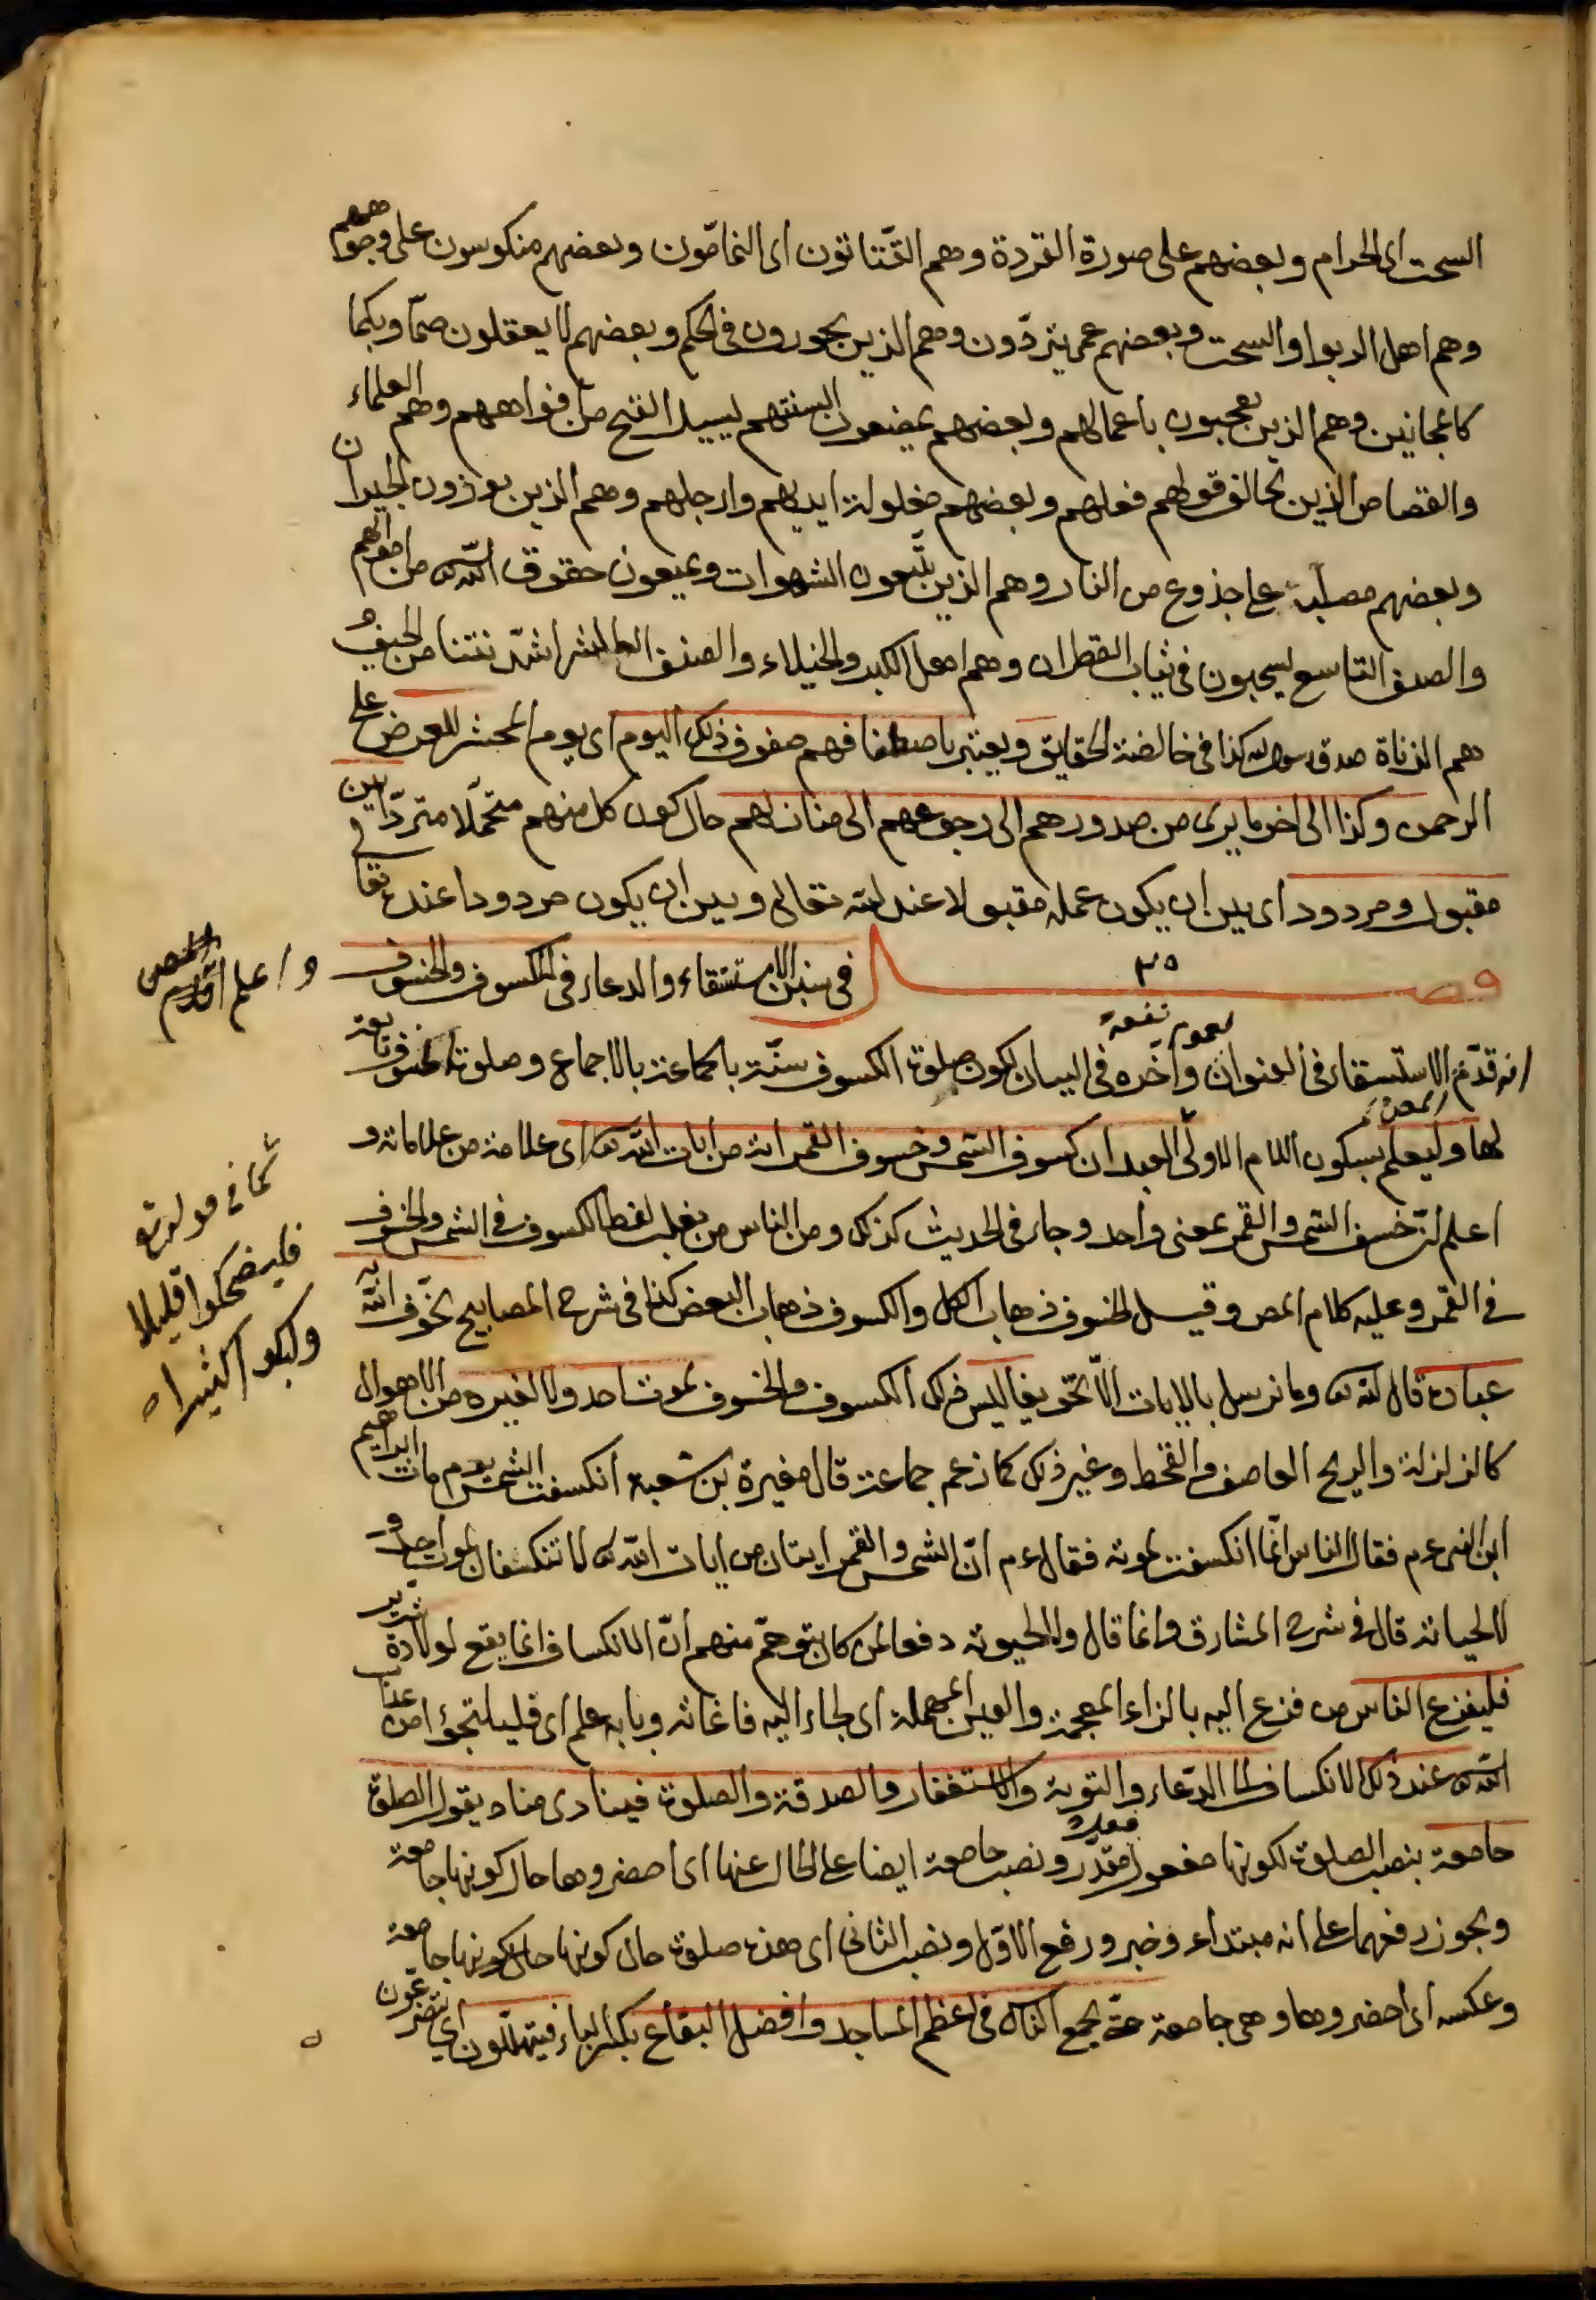 السحت اى الحرام وبعضهم على صورة القردة وهم القتّاتون اى النمامّون وبعضهم منكوسون على وجوههم
وهم اهل الربوا والسحت وبعضهم عمى يتردّدون وهم الذين يجورون فى الحكم وبعضهم لا يعقلون صمّا وبكما
كالمجانين وهم الذين يعجبون باعمالهم وبعضهم يمضغون السنتهم ليسيل القيح من افواههم وهم العلماء
والقصاص الذين يخالف قولهم فعلهم وبعضهم مغلولة ايديهم وارجلهم وهم الذين يوذون الجيران
وبعضهم مصلّبة على جذوع من النار وهم الذين يتّبعون الشهوات ويمنعون حقوق اللّه من اموالهم
والصنف التاسع يسحبون فى ثياب القطران وهم اهل الكبر والخيلاء والصنف العاشر اشدّ نتنا من الجيف و
هم الزناة صدق رسول الله كذا فى خالصة الحقايق ويعتبر باصطفافهم صفوف ذلك اليوم اى يوم المحشر للعرض على
الرحمن وكذا الى اخر ما يرى من صدورهم الى رجوعهم الى منازلهم حال كون كل منهم متحمّلا متردّدا بين
مقبول ومردود اى بين ان يكون عمله مقبولا عند الله تعالى وبين ان يكون مردودا عنده تعا
فصل ٣٥ فى سنن الاستسقاء والدعاء فى الكسوف والخسوف
واعلم
انه قدّم الاستسقاء فى العنوان واخّره فى البيان لكون صلوة الكسوف سنّة بالجماعة بالاجماع وصلوة الخسوف تابعة
لعموم نفعه
لها وليعلم بسكون اللام الاولى العبد ان كسوف الشمس وخسوف القمر اية من ايات اللّه اى علامة من علاماته و
اعلم انّ خسف الشمس والقمر بمعنى واحد وجاء فى الحديث كذلك ومن الناس من يغلب لفظ الكسوف فى الشمس والخسوف
فى القمر وعليه كلام المص وقيل الخسوف ذهاب الكل والكسوف ذهاب البعض كذا فى شرح المصابيح يخوّف اللّه به
عباده قال الله وما نرسل بالايات الاّ تخويفا ليس ذلك الكسوف والخسوف لموت احد ولا لغيره من الاهوال
كالزلزلة والريح العاصف والقحط وغير ذلك كما زعم جماعة قال مغيرة بن شعبة انكسفت الشمس يوم مات ابراهيم
ابن النبى عم فقال الناس انّما انكسفت لموته فقال عم انّ الشمس والقمر ايتان من ايات اللّه لا تنكسفان لموت احد و
لا لحياته قال فى شرح المشارق وانما قال ولا لحيوته دفعا لمن كان يتوهّم منهم انّ الانكساف انما يقع لولادة شرير
فليفزع الناس من فزع اليه بالزاء المعجمة والعين المهملة اى لجاء اليه فاغاثه وبابه علم اى فليلتجؤا من عذاب
اللّه عند ذلك الانكساف الى الدّعاء والتوبة والاستغفار والصدقة والصلوة فينادى مناد يقول الصلوة
جامعة بنصب الصلوة لكونها مفعول فعل مقدّر ونصب جامعة ايضا على الحال عنها اى احضروها حال كونها جامعة
ويجوز رفعهما على انه مبتداء وخبر ورفع الاوّل ونصب الثانى اى هذه صلوة حال كونها حال كونها جامعة
وعكسه اى احضروها وهى جامعة حتّى يجمع الناس فى اعظم المساجد وافضل البقاع بكسر الباء فيتهلّون اى يتضرّعون
كما فى قوله تع
فليضحكوا قليلا
وليبكوا كثيرا